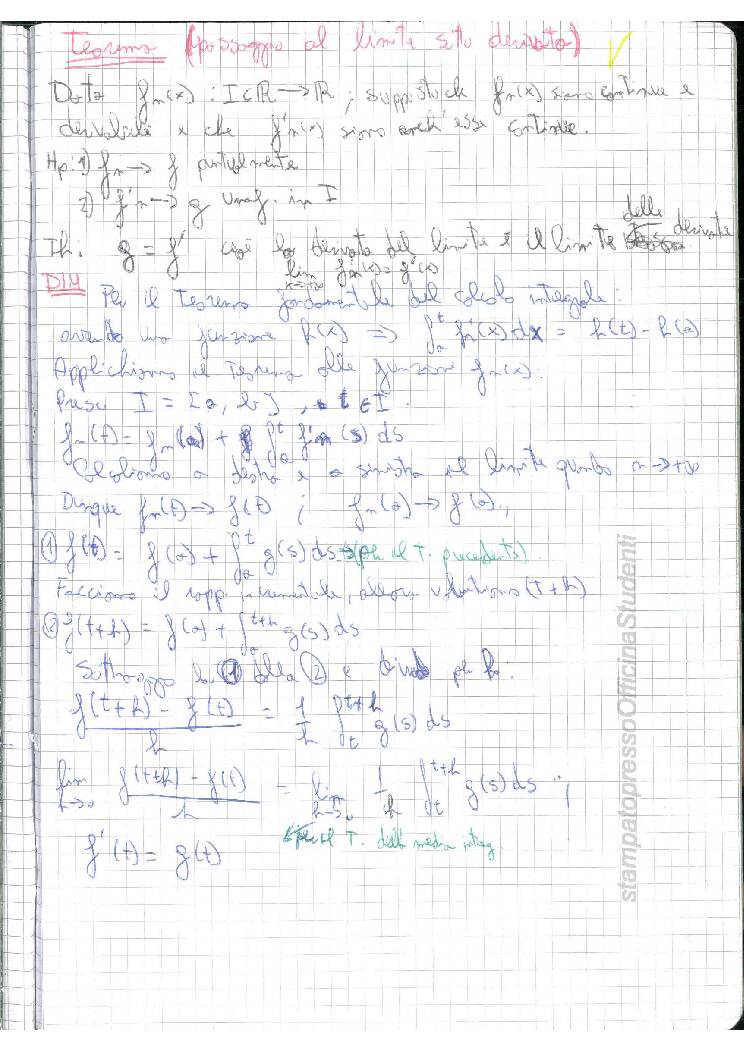 Teorema (passaggio al limite sotto derivata)
Data fn(x) : I⊂R → R ; supposto che fn(x) siano continue e
derivabili e che f'n(x) siano anch'esse continue.
Hp: 1) fn → f puntualmente
2) f'n → g unif. in I
Th: g = f' cioè la derivata del limite è il limite delle derivate
lim f'n(x) = f'(x)
x→+∞
DIM Per il teorema fondamentale del calcolo integrale:
avendo una funzione h(x) ⇒ ∫ₐᵗ h'(x) dx = h(t) - h(a)
Applichiamo il Teorema alle funzioni fn(x).
Preso I = [a, b] , t ∈ I.
fn(t) = fn(a) + ∫ₐᵗ f'n (s) ds
Calcoliamo a destra e a sinistra il limite quando n→+∞
Dunque fn(t) → f(t) ; fn(a) → f(a).,
① f(t) = f(a) + ∫ₐᵗ g(s) ds → (per il T. precedente).
Facciamo il rapp. incrementale, allora valutiamo (t+h)
② f(t+h) = f(a) + ∫ₐᵗ⁺ʰ g(s) ds
Sottraggo la ① dalla ② e divido per h:
f(t+h) - f(t) / h = 1/h ∫ₜᵗ⁺ʰ g(s) ds
lim h→0 f(t+h) - f(t) / h = lim h→0 1/h ∫ₜᵗ⁺ʰ g(s) ds ;
f'(t) = g(t) per il T. della media integ.
stampatopressoOfficinaStudenti